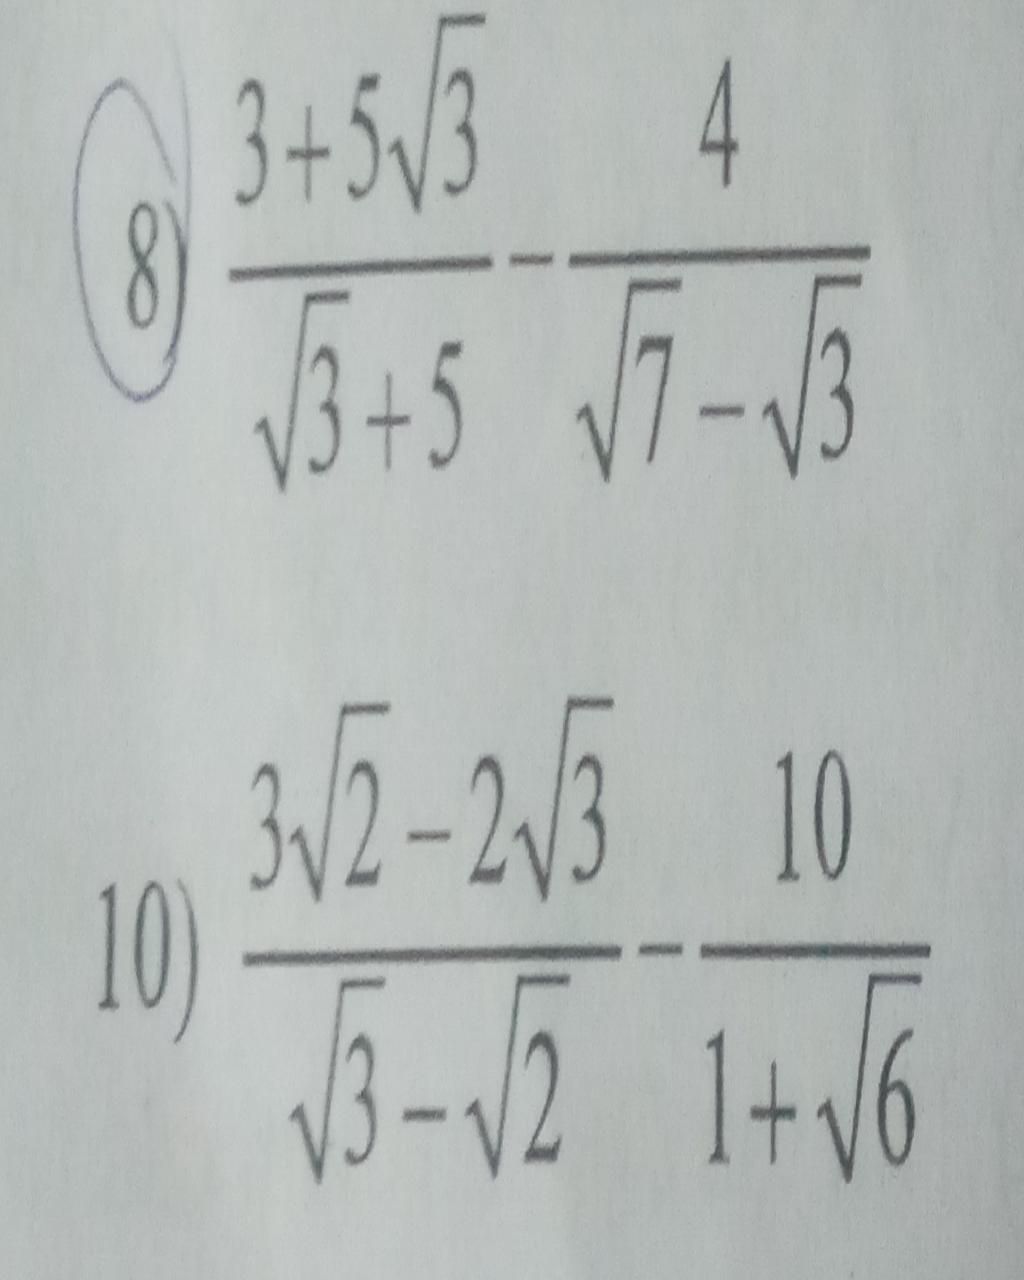 8) \frac{3+5\sqrt{3}}{\sqrt{3}+5} - \frac{4}{\sqrt{7}-\sqrt{3}}
10) \frac{3\sqrt{2}-2\sqrt{3}}{\sqrt{3}-\sqrt{2}} - \frac{10}{1+\sqrt{6}}